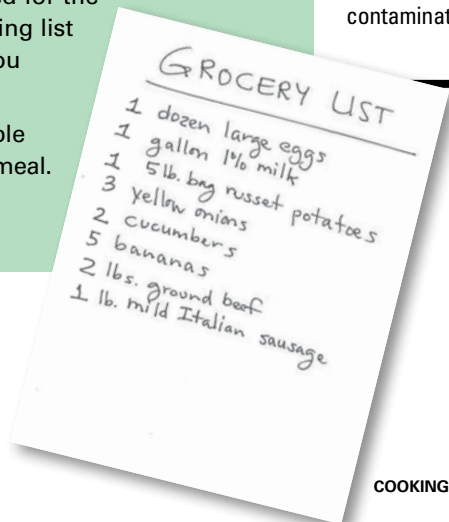 d for the
ing list
ou
ole
meal.
contaminat
GROCERY LIST
1 dozen large eggs
1 gallon 1% milk
1 5 lb. bag russet potatoes
3 yellow onions
2 cucumbers
5 bananas
2 lbs. ground beef
1 lb. mild Italian sausage
COOKING